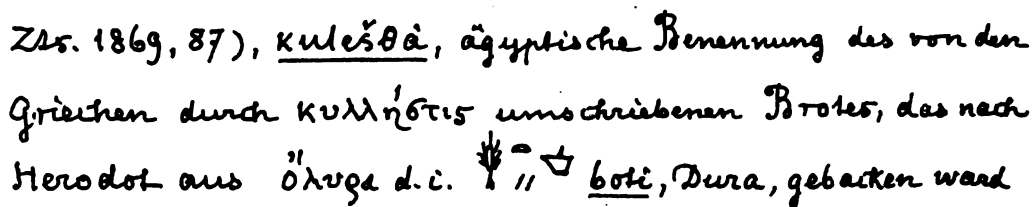 Zts. 1869, 87), kulešθá, ägyptische Benennung des von den
Griechen durch κυλλήστις umschriebenen Brotes, das nach
Herodot aus ὄλυρα d.i. boti, Dura, gebacken ward